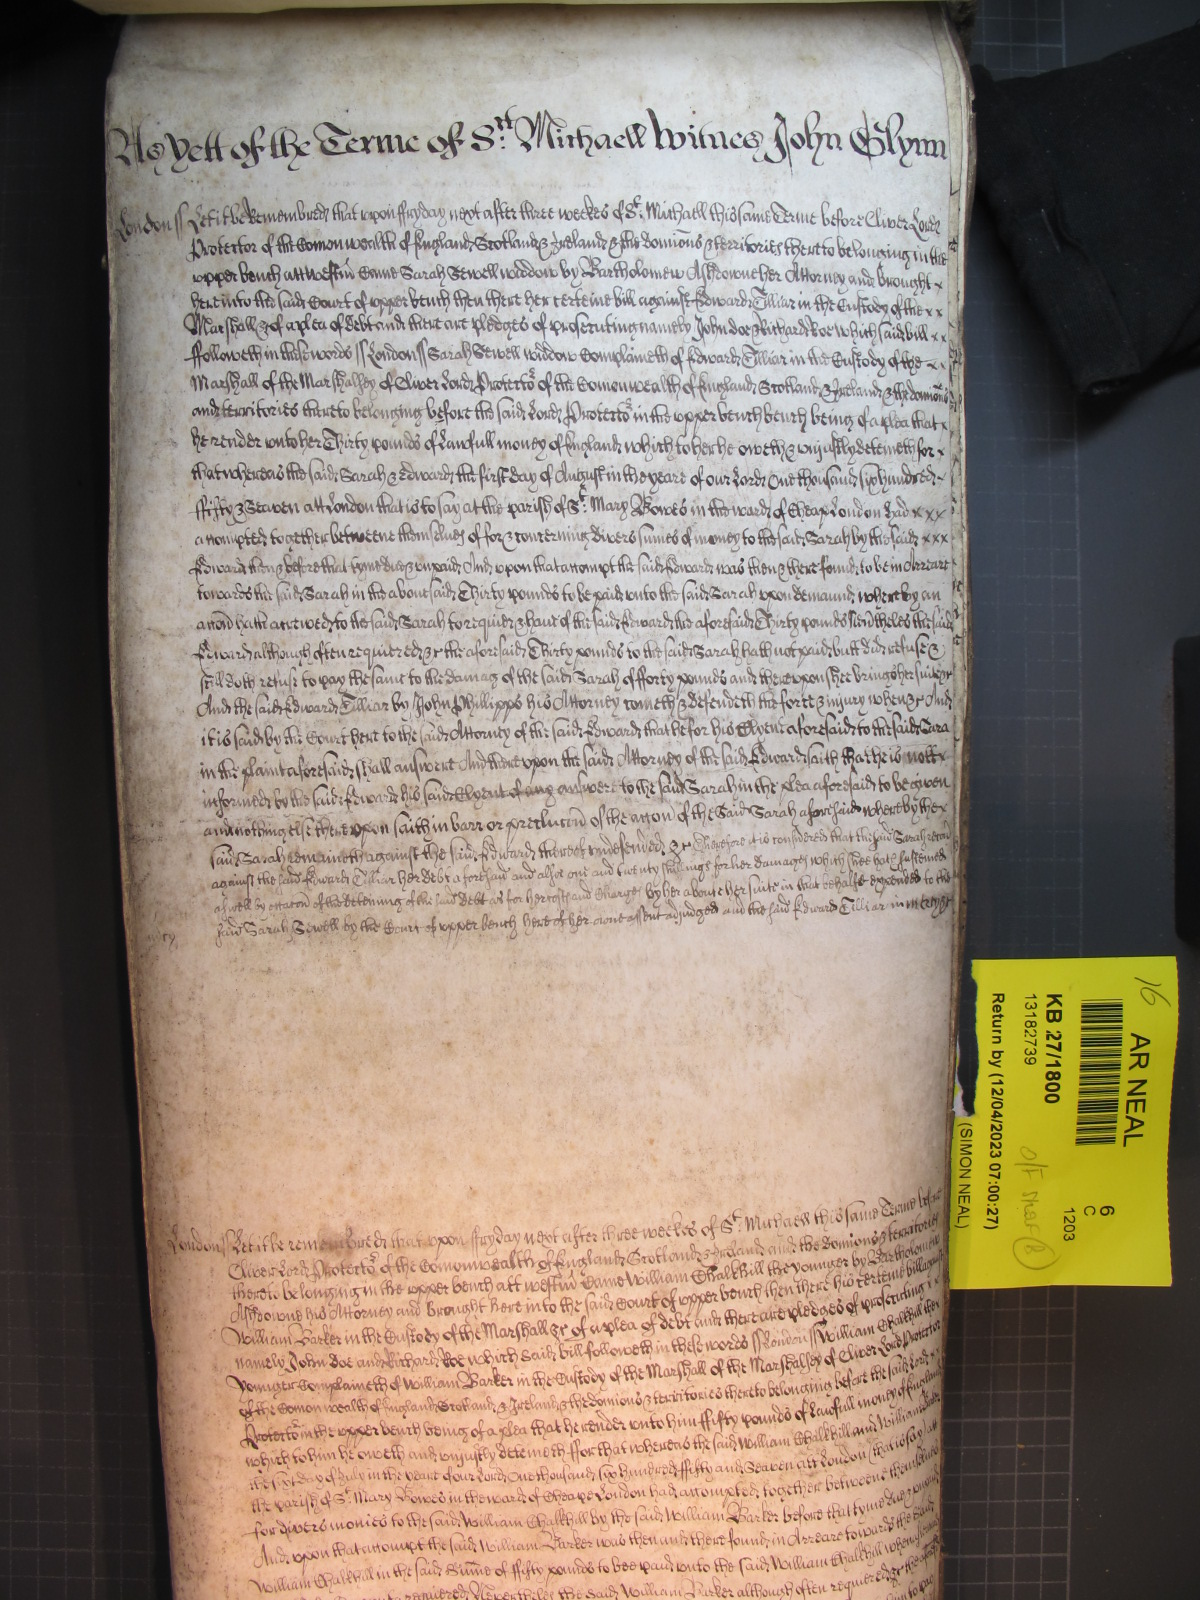 As yett of the Terme of St. Michaell Witnes John Glynn
London ss Lett it be Remembred that upon ffryday next after three weekes of St. Michaell this same Terme before Oliver Lord
Protector of the Comonwealth of England Scotland & Ireland & the dominions & territories thereto belonging in the
upper bench att Westm Came Sarah Sewell widdow by Bartholomew Ashdowne her Attorney and brought
here into the said Court of upper bench then there her certeine bill against Edward Tilliar in the Custody of the
Marshall &c of a plea of debt and there are pledges of prosecuting namely John doe & Richard Roe which said bill
ffolloweth in these words ss London ss Sarah Sewell widdow Complaineth of Edward Tilliar in the Custody of the
Marshall of the Marshalsey of Oliver Lord Protector of the Comonwealth of England Scotland & Ireland & the dominions
and territories thereto belonging before the said Lord Protector in the upper bench bench being of a plea that
he render unto her Thirty pounds of Lawfull money of England which to her he oweth & unjustly deteineth for
that whereas the said Sarah & Edward the first day of August in the yeare of our Lord One thousand six hundred
ffifty & Seaven att London that is to say at the parish of St. Mary Bowes in the ward of Cheap London had
accompted together betweene themselves of for & concerning divers sumes of money to the said Sarah by the said
Edward then & before that tyme due & unpaid And upon that accompt the said Edward was then & there found to be in Arreare
towards the said Sarah in the abovesaid Thirty pounds to be paid unto the said Sarah upon demaund whereby an
accon hath accrewed to the said Sarah to require & have of the said Edward the aforesaid Thirty pounds Nevtheles the said
Edward although often requiered &c the aforesaid Thirty pounds to the said Sarah hath not paid butt did refuse &
still doth refuse to pay the same to the damag of the said Sarah of fforty pounds and thereupon shee brings her suite &c
And the said Edward Tilliar by John Phillipps his Attorney cometh & defendeth the force & injury when &c And
it is said by the Court here to the said Attorney of the said Edward that he for his Clyent aforesaid to the said Sara
in the plaint aforesaid shall answere And thereupon the said Attorney of the said Edward saith that he is nott
informed by the said Edward his said Clyent of any answere to the said Sarah in the plea aforesaid to be given
and nothing else thereupon saith in barr or preclucon of the accon of the said Sarah aforesaid whereby the
said Sarah remaineth against the said Edward thereof undefended &c Therefore it is considered that the said Sarah recou
against the said Edward Tilliar her debt aforesaid and alsoe one and twenty shillings for her damages which shee hath susteined
aswell by occasion of the deteining of the said debt as for her costs and Charges by her about her suite in that behalfe expended to the
said Sarah Sewell by the Court of upper bench here of her owne assent adjudged and the said Edward Tilliar in mercy &c
London ss Lett it be remembred that upon ffryday next after three weekes of St. Michaell this same Terme before
Oliver Lord Protector of the Comonwealth of England Scotland & Ireland and the dominions & territories
thereto belonging in the upper bench att westm Came William Chalkhill the younger by Bartholomew
Ashdowne his Attorney and brought here into the said Court of upper bench then there his certeine bill against
William Barker in the Custody of the Marshall &c of a plea of debt and there are pledges of prosecuting
namely John Doe and Richard Roe which said bill followeth in these words ss London ss William Chalkhill the
younger Complaineth of William Barker in the Custody of the Marshall of the Marshalsey of Oliver Lord Protector
of the Comon wealth of England Scotland & Ireland & the dominions & territories thereto belonging before the said Lord
Protector in the upper bench being of a plea that he render unto him ffifty pounds of Lawfull money of England
which to him he oweth and unjustly deteineth ffor that whereas the said William Chalkhill and William Barker
the sixt day of July in the yeare of our Lord One thousand six hundred ffifty and Seaven att London that is to say att
the parish of St. Mary Bowes in the ward of Cheape London had accompted together betweene themselves
for divers monies to the said William Chalkhill by the said William Barker before that tyme due & unpaid
And upon that accompt the said William Barker was then and there found in Arreare towards the said
William Chalkhill in the said Sume of ffifty pounds to bee paid unto the said William Chalkhill when
requiered Nevertheles the said William Barker although often requiered &c the aforesaid
16
AR NEAL
KB 27/1800
13182739
Return by (12/04/2023 07:00:27)
(SIMON NEAL)
6
C
1203